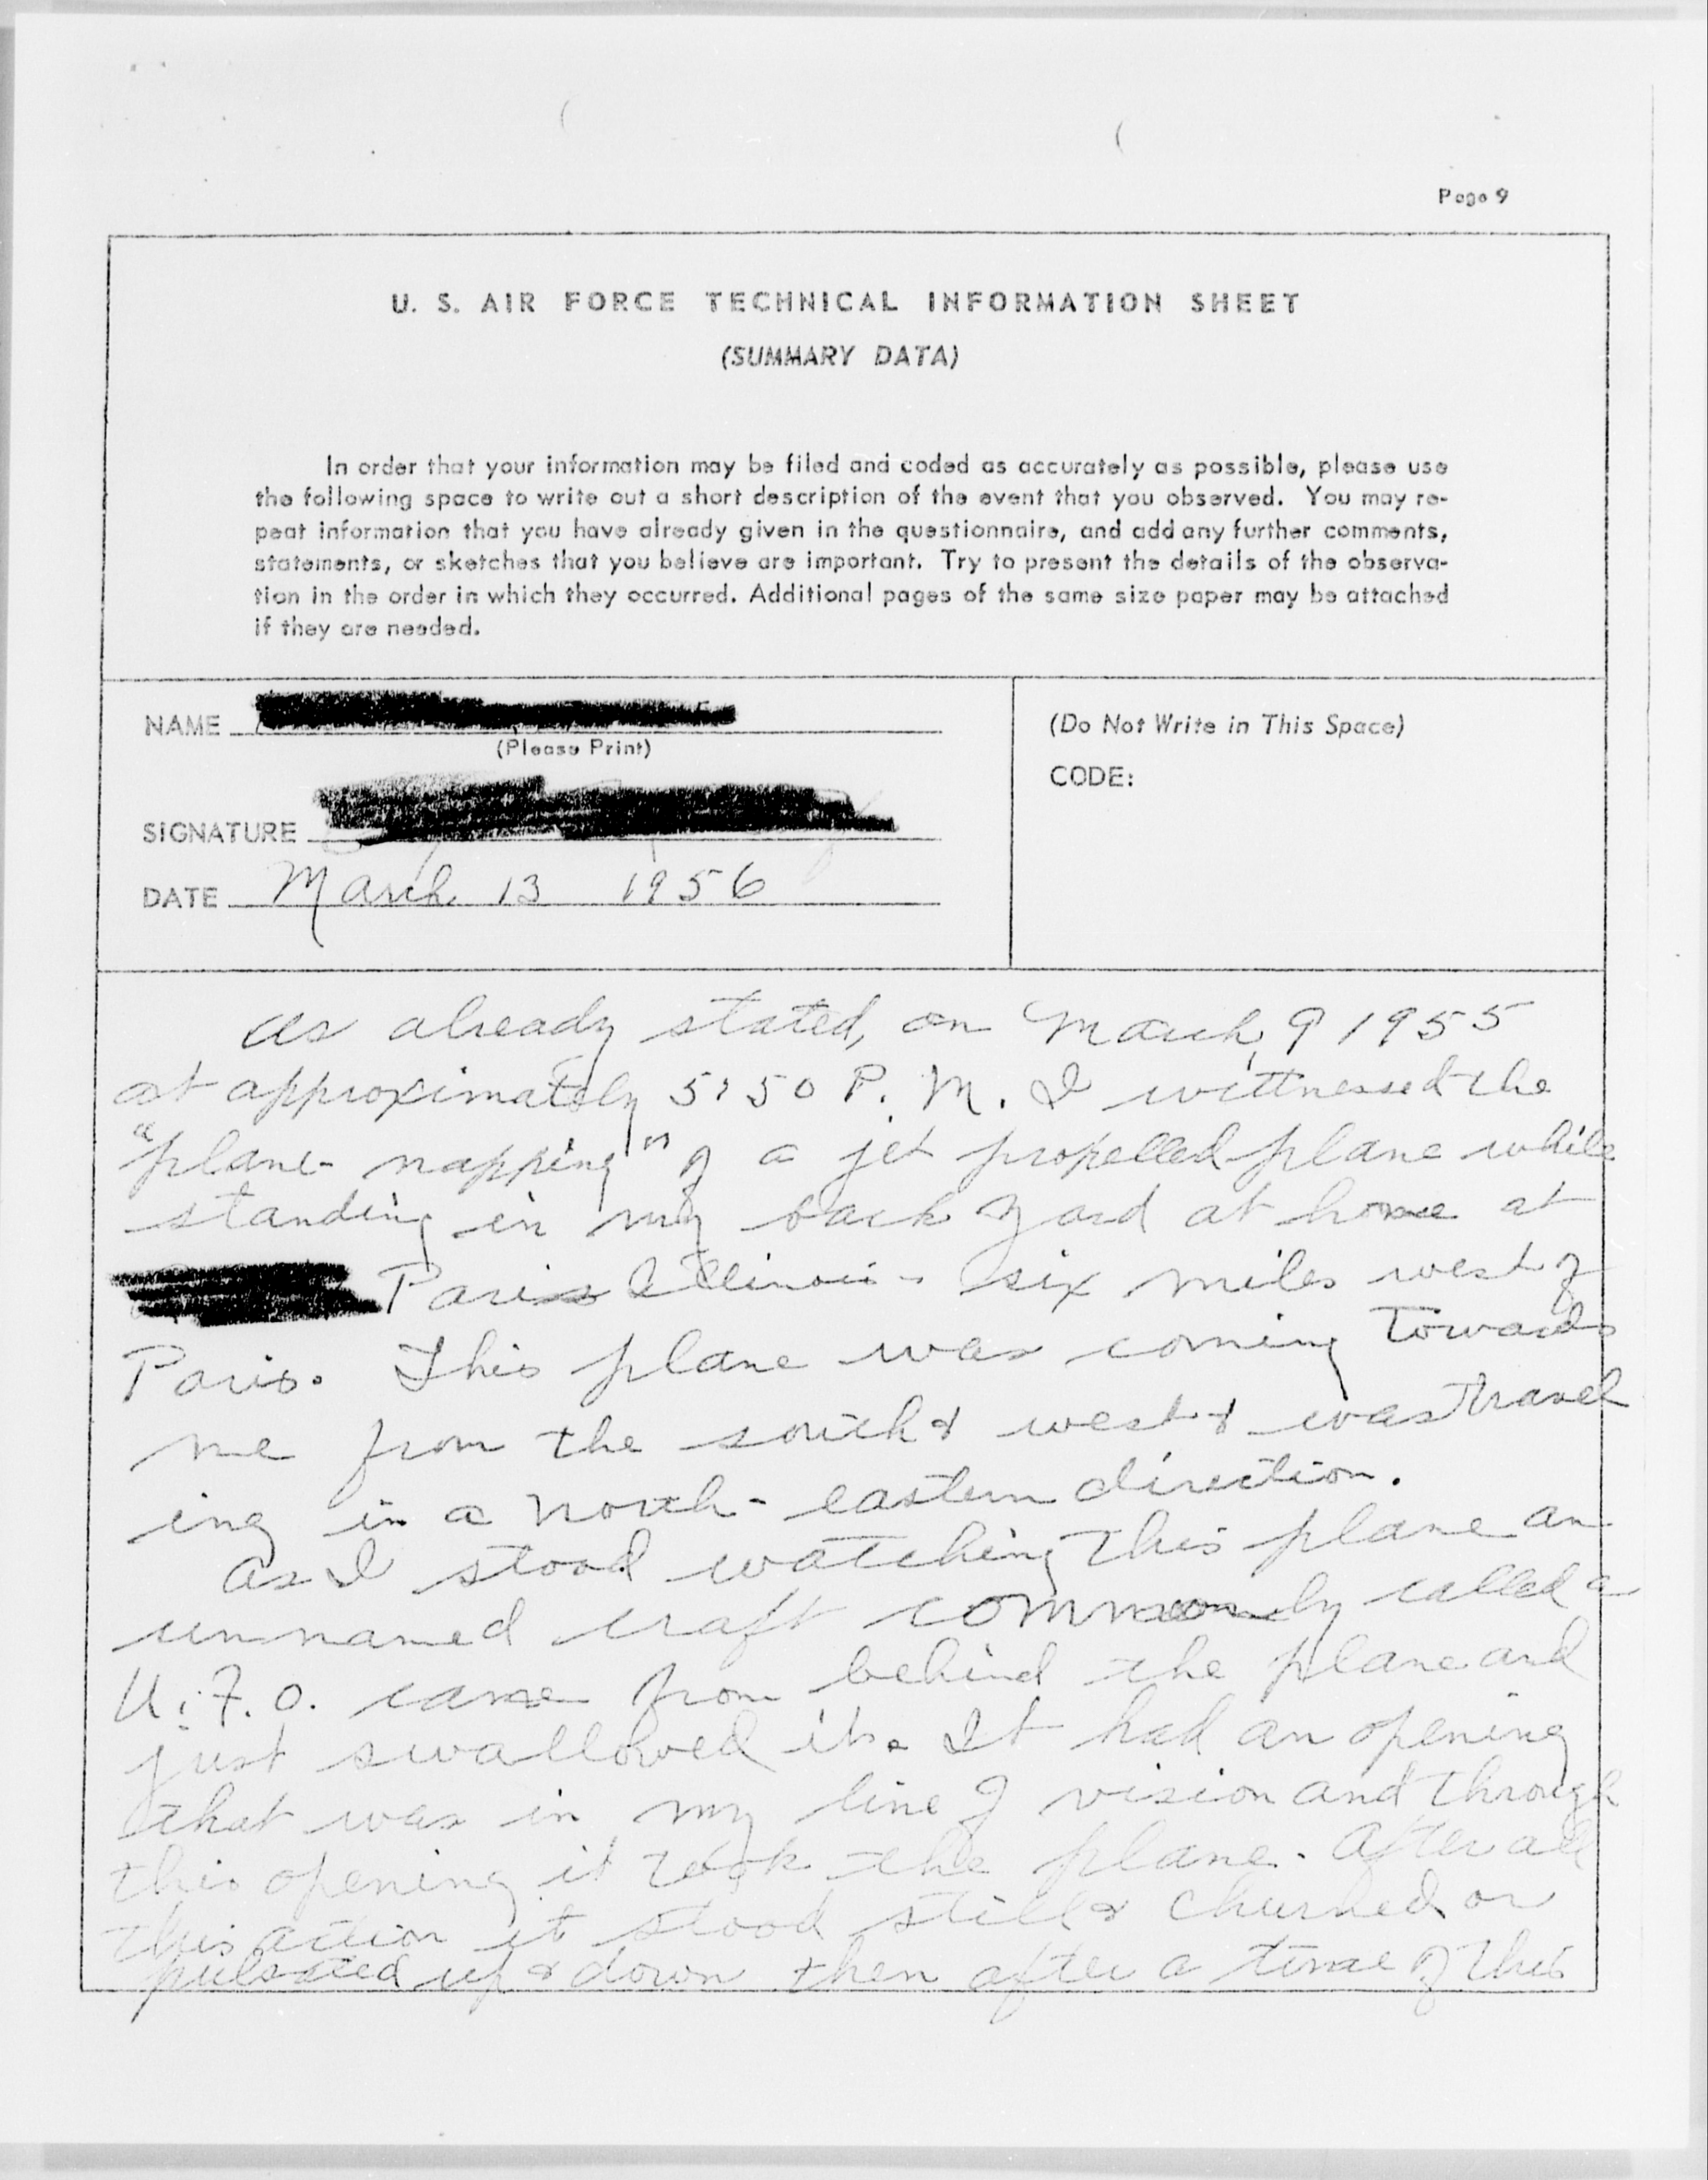 Page 9
U. S. AIR FORCE TECHNICAL INFORMATION SHEET
(SUMMARY DATA)
In order that your information may be filed and coded as accurately as possible, please use
the following space to write out a short description of the event that you observed. You may re-
peat information that you have already given in the questionnaire, and add any further comments,
statements, or sketches that you believe are important. Try to present the details of the observa-
tion in the order in which they occurred. Additional pages of the same size paper may be attached
if they are needed.
NAME
(Please Print)
SIGNATURE
DATE March 13 1956
(Do Not Write in This Space)
CODE:
As already stated, on March 9 1955
at approximately 5:50 P. M. I wittnessed the
"plane-napping" of a jet propelled plane while
standing in my back yard at home at
Paris Illinois - six miles west of
Paris. This plane was coming towards
me from the south & west & was travel
ing in a north-eastern direction.
As I stood watching this plane an
unnamed craft commonly called a
U.F.O. came from behind the plane and
just swallowed it. It had an opening
that was in my line of vision and through
this opening it took the plane. After all
this action it stood still & churned or
pulsated up & down then after a time of this